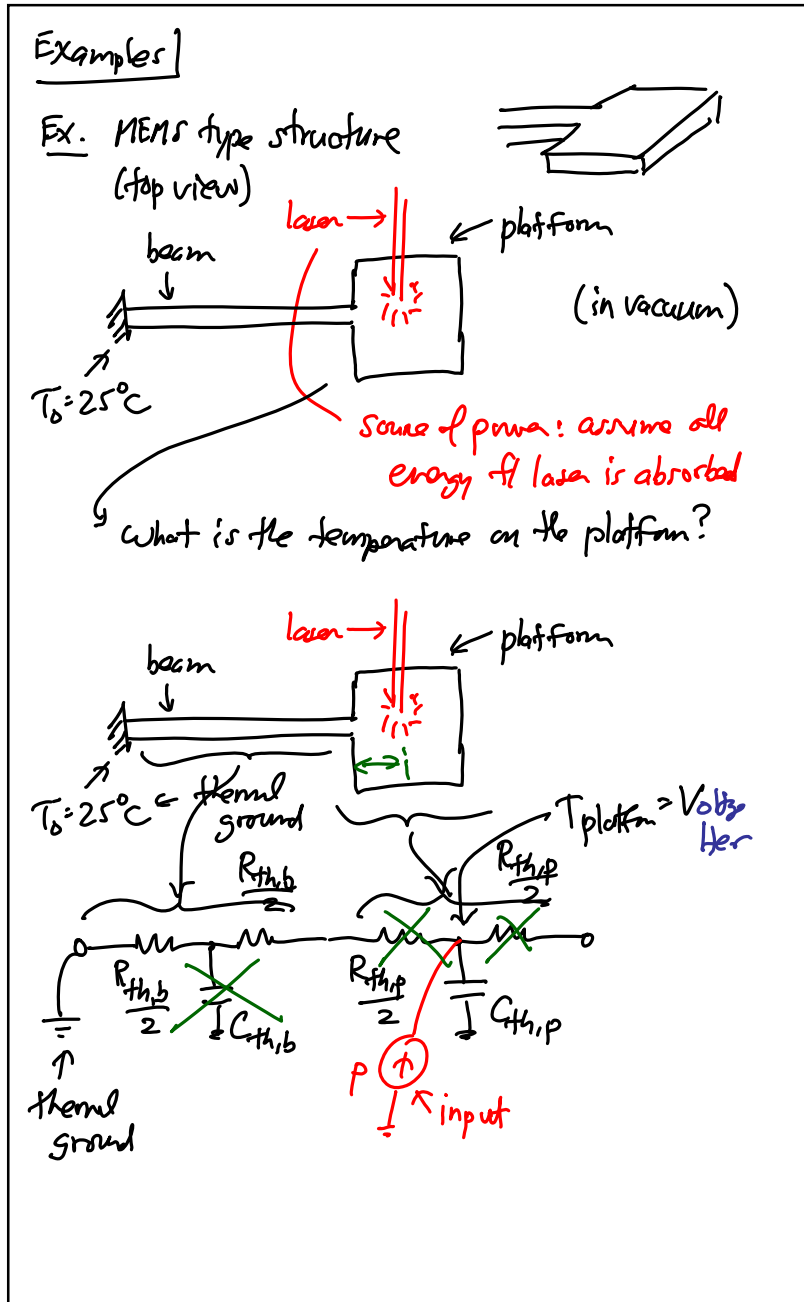 Examples
Ex. MEMS type structure
(top view)
laser
platform
beam
(in vacuum)
T₀ = 25°C
source of power: assume all
energy f/ laser is absorbed
What is the temperature on the platform?
laser
platform
beam
i
T₀ = 25°C
thermal
ground
Tplatform = Voltage
Her
Rth,b/2
Rth,p/2
Rth,b/2
Cth,b
Rth,p/2
Cth,p
P
input
thermal
ground